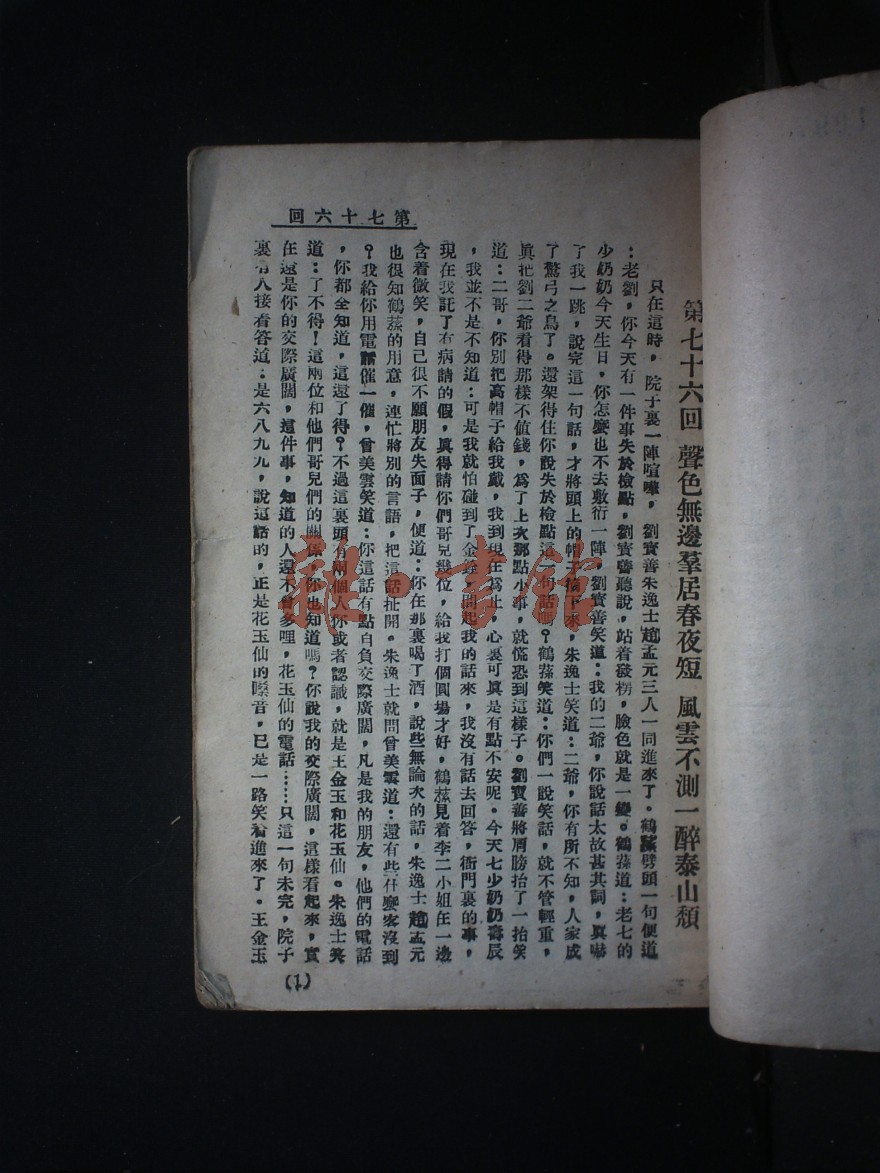 第七十六回
第七十六回 聲色無邊羣居春夜短 風雲不測一醉泰山頹
只在這時，院子裏一陣喧嘩，劉寶善朱逸士趙孟元三人一同進來了。鶴蓀劈頭一句便道
：老劉，你今天有一件事失於檢點，劉寶善聽說，站着發楞，臉色就是一變。鶴蓀道：老七的
少奶奶今天生日，你怎麽也不去敷衍一陣，劉寶善笑道：我的二爺，你說話太故甚其詞，眞嚇
了我一跳，說完這一句話，才將頭上的帽子摘下來，朱逸士笑道：二爺，你有所不知，人家成
了驚弓之鳥了。還架得住你說失於檢點這一句話嗎？鶴蓀笑道：你們一說笑話，就不管輕重，
眞把劉二爺看得那樣不值錢，爲了上次那點小事，就慌恐到這樣子。劉寶善將肩膀抬了一抬笑
道：二哥，你別把高帽子給我戴，我到現在爲止，心裏可眞是有點不安呢。今天七少奶奶壽辰
，我並不是不知道：可是我就怕碰到了金銓，問起我的話來，我沒有話去回答，衙門裏的事，
現在我託了有病請的假，眞得請你們哥兒幾位，給我打個圓場才好，鶴蓀見着李二小姐在一邊
含着微笑，自己很不願朋友失面子，便道：你在那裏喝了酒，說些無論次的話，朱逸士趙孟元
也很知鶴蓀的用意，連忙將別的言語，把這話扯開。朱逸士就問曾美雲道：還有些什麽客沒到
？我給你用電話催一催，曾美雲笑道：你這話有點自負交際廣闊，凡是我的朋友，他們的電話
，你都全知道，這還了得？不過這裏頭有兩個人你或者認識，就是王金玉和花玉仙。朱逸士笑
道：了不得！這兩位和他們哥兒們的關係，你也知道嗎？你說我的交際廣闊，這樣看起來，實
在還是你的交際廣闊，這件事，知道的人還不曾多哩，花玉仙的電話……只這一句未完，院子
裏有人接着答道：是六八九九，說這話的，正是花玉仙的嗓音，已是一路笑着進來了。王金玉
(1)
雜·書館